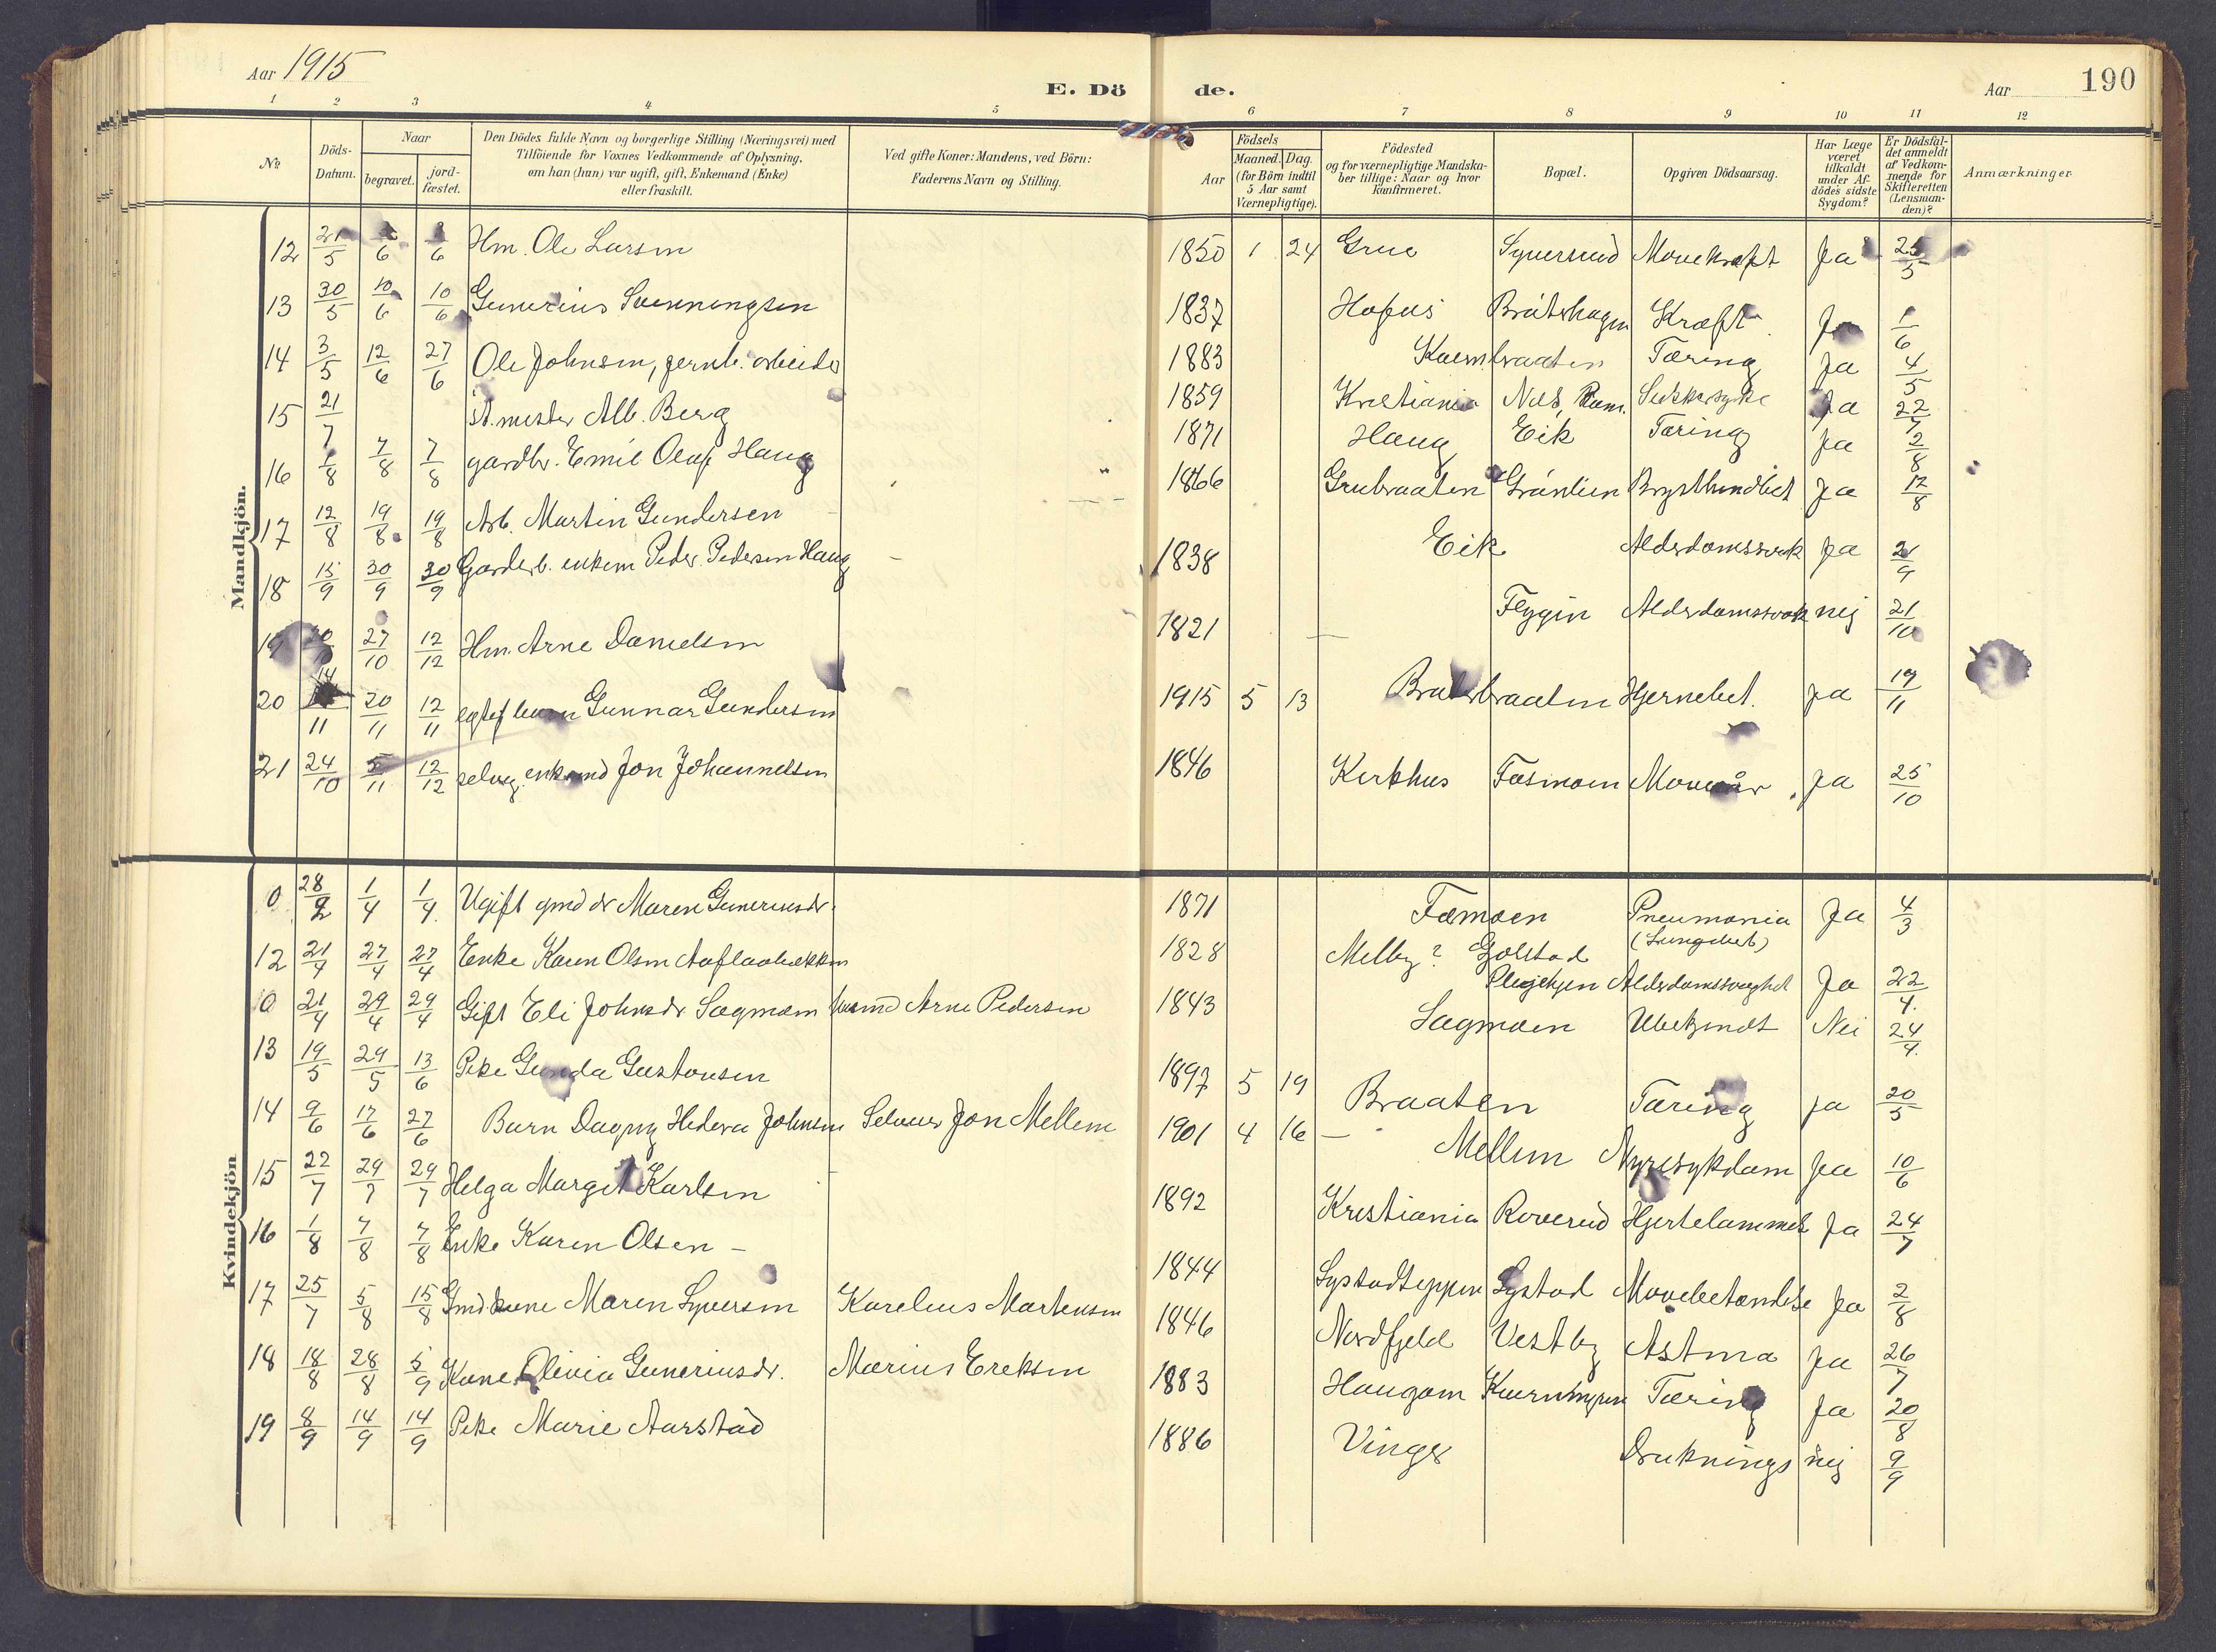 Aar 1915
E. Döde.
Aar 190
1 2 3 4 5 6 7 8 9 10 11 12
№
Döds-Datum.
Naar
begravet.
jord-fæstet.
Den Dödes fulde Navn og borgerlige Stilling (Næringsvei) med
Tilföiende for Voxnes Vedkommende af Oplysning,
om han (hun) var ugift, gift, Enkemand (Enke)
eller fraskilt.
Ved gifte Koner: Mandens, ved Börn:
Faderens Navn og Stilling.
Födsels
Aar
Maaned. Dag.
(for Börn indtil
5 Aar samt
Værnepligtige).
Födested
og for værnepligtige Mandska-
ber tillige: Naar og hvor
konfirmeret.
Bopæl.
Opgiven Dödsaarsag.
Har Læge
været
tilkaldt
under Af-
dödes sidste
Sygdom?
Er Dödsfal-
det anmeldt
af Vedkom-
mende for
Skifteretten
(Lensman-
den)?
Anmærkninger
Mandkjön.
12 21/5 /6 /6 Hm. Ole Larsen 1850 1 24 Grue Syversrud Mavekræft Ja 25/5
13 30/5 10/6 10/6 Gunerius Svenningsen 1837 Hofus Bråtshagen Kræft Ja 1/6
14 3/5 12/6 27/6 Ole Johnsen, jernb. arbeider 1883 Kværnbraaten Tæring Ja 4/5
15 21/7 st.mester Alb. Berg 1859 Kristiania Sukkersyke Ja 22/7
16 1/8 7/8 7/8 gardbr. Emil Olaf Haug 1871 Haug Eik Tæring Ja 2/8
17 12/8 19/8 19/8 Arb. Martin Gundersen 1866 Grubraaten Grånlien Brysthindebet Ja 12/8
18 15/9 30/9 30/9 Garderb. enkem Peder Pedersen Haug 1838 Eik Alderdomssvak Ja 21/9
19 27/10 12/12 Hm. Arne Danielsen 1821 — Flygin Alderdomssvak nej 21/10
20 14/11 20/11 12/11 egtef barn Gunnar Gundersen 1915 5 13 Hjernebet. Ja 19/11
21 24/10 5/11 12/12 selveg. enkemd Jon Johannessen 1846 Kirkhus Tasmoen Ja 25/10
Kvindekjön
0 28/2 1/4 1/4 Ugift gmd dr Maren Generiusdr. 1871 Tæmoen Pneumonia (Lungebet) Ja 4/3
12 21/4 27/4 27/4 Enke Karen Olsen Aaflaabækken 1828 Melby? Golstad Plejehjem Alderdomssvaghet Ja 22/4.
0 21/4 29/4 29/4 Gift Eli Johnsdr Sagmoen husmd Arne Pedersen 1843 Sagmoen Ubekjendt Nei 24/4.
13 19/5 29/5 13/6 Pike Gunda Gustavsen 1897 5 19 Braaten Tæring Ja 20/5
14 9/6 17/6 27/6 Barn Dagny Hedera Johnsen Selveier Jon Mellem 1901 4 16 — Mellem Nyresykdom Ja 10/6
15 22/7 29/7 29/7 Helga Margit Karlsen 1892 Kristiania Roverud Hjertelammelse Ja 24/7
16 1/8 7/8 7/8 Enke Karen Olsen – 1844 Systadteppen Systad Mavebetændelse Ja 2/8
17 25/7 5/8 15/8 Gmd.kone Maren Syversen Karelius Martensen 1846 Nordfjeld Vestby Astma Ja 26/7
18 18/8 28/8 5/9 Kone Olivia Guneriusdr. Marius Ereksen 1883 Haugom Kværnmyren Tæring Ja 20/8
19 8/9 14/9 14/9 Pike Marie Aarstad 1886 Vinger Druknings nej 9/9